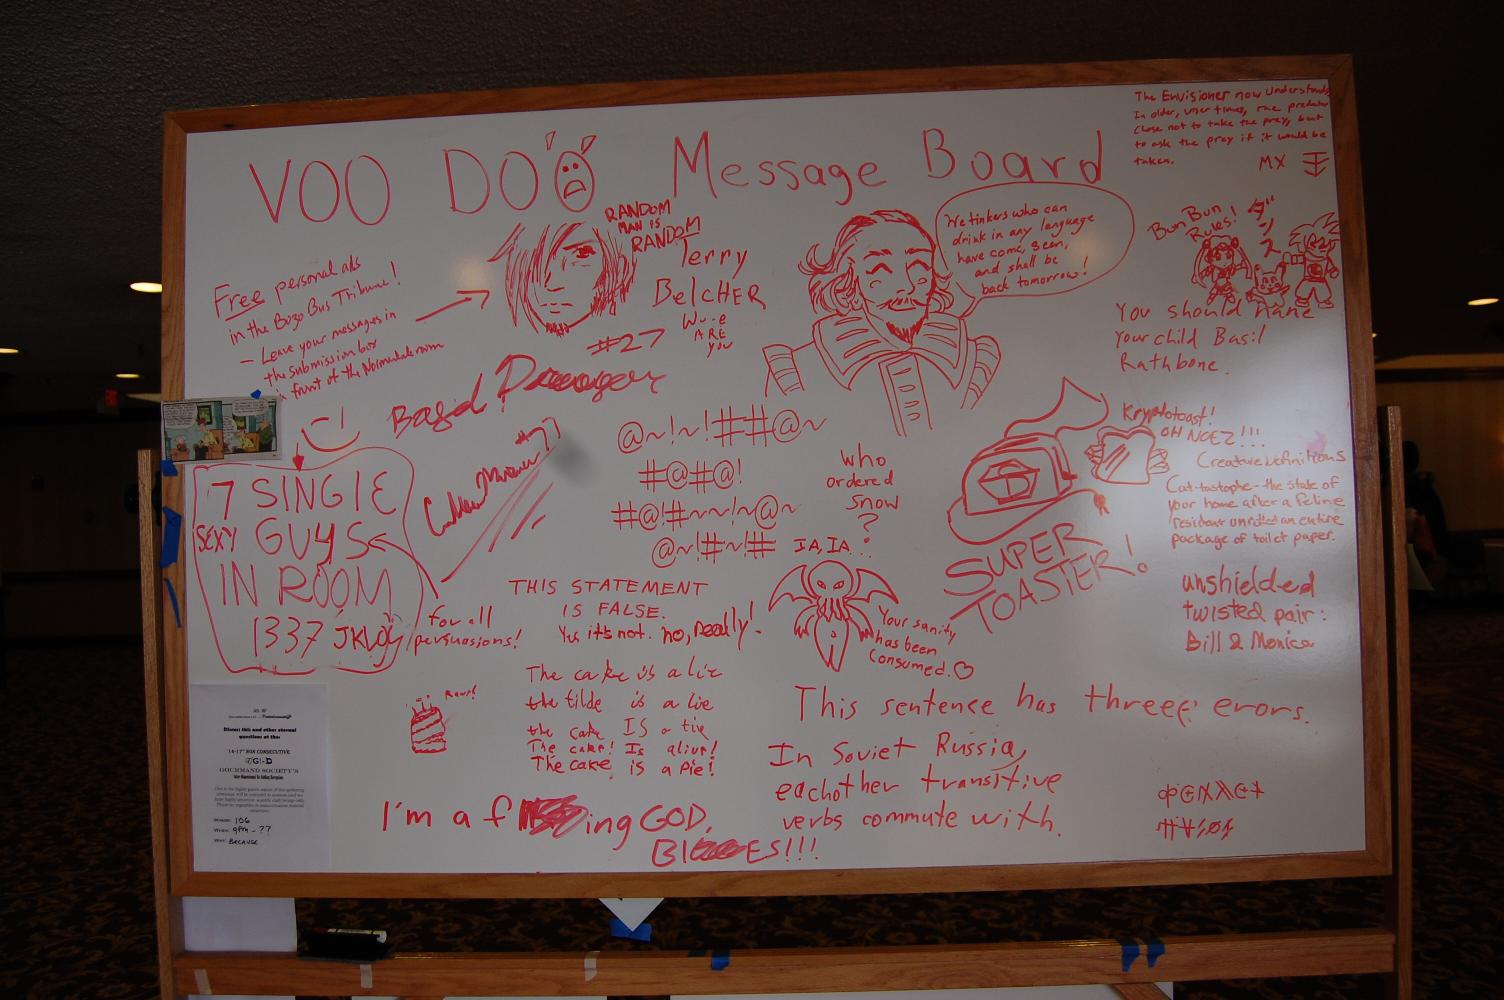 VOO DOO Message Board
The Envisioner now understands
In older, wiser times, the predator
Chose not to take the prey, but
to ask the pray if it would be
taken.
MX
RANDOM
MAN IS
RANDOM
Terry
BelCHER
ARE
YOU
#27
We tinkers who can
drink in any language
have come, seen,
and shall be
back tomorrow!
Bun Bun
Rules!
You should name
Your child Basil
Rathbone.
Free personal ads
in the Bozo Bus Tribune!
- Leave your messages in
the submission box
in front of the room
Basil
#77
7 SINGlE
SEXY GUYS
IN ROOM
1337
for all
persuasions!
@~!~!##@~
#@#@!
#@!#~~!~@~
@~!#~!#
who
ordered
snow
?
IA, IA...
Your sanity
has been
Consumed. ♡
SUPER
TOASTER!
Kryptotoast!
OH NOEZ!!!
Creative definitions
Cat-tastophe - the state of
your home after a feline
resident unrolled an entire
package of toilet paper.
unshielded
twisted pair:
Bill & Monica
THIS STATEMENT
IS FALSE.
Yes it's not. no, really!
The cake is a lie
the tilde is a lie
the cake IS a lie
The cake! Is alive!
The cake is a pie!
Rawr!
This sentence has threee erors.
In Soviet Russia,
eachother transitive
verbs commute with.
I'm a f ing GOD,
BI ES!!!
Discuss this and other eternal
questions at the:
14-17th NON CONSECUTIVE
GOURMAND SOCIETY'S
Where: 106
When: 9pm - ??
Why: BECAUSE